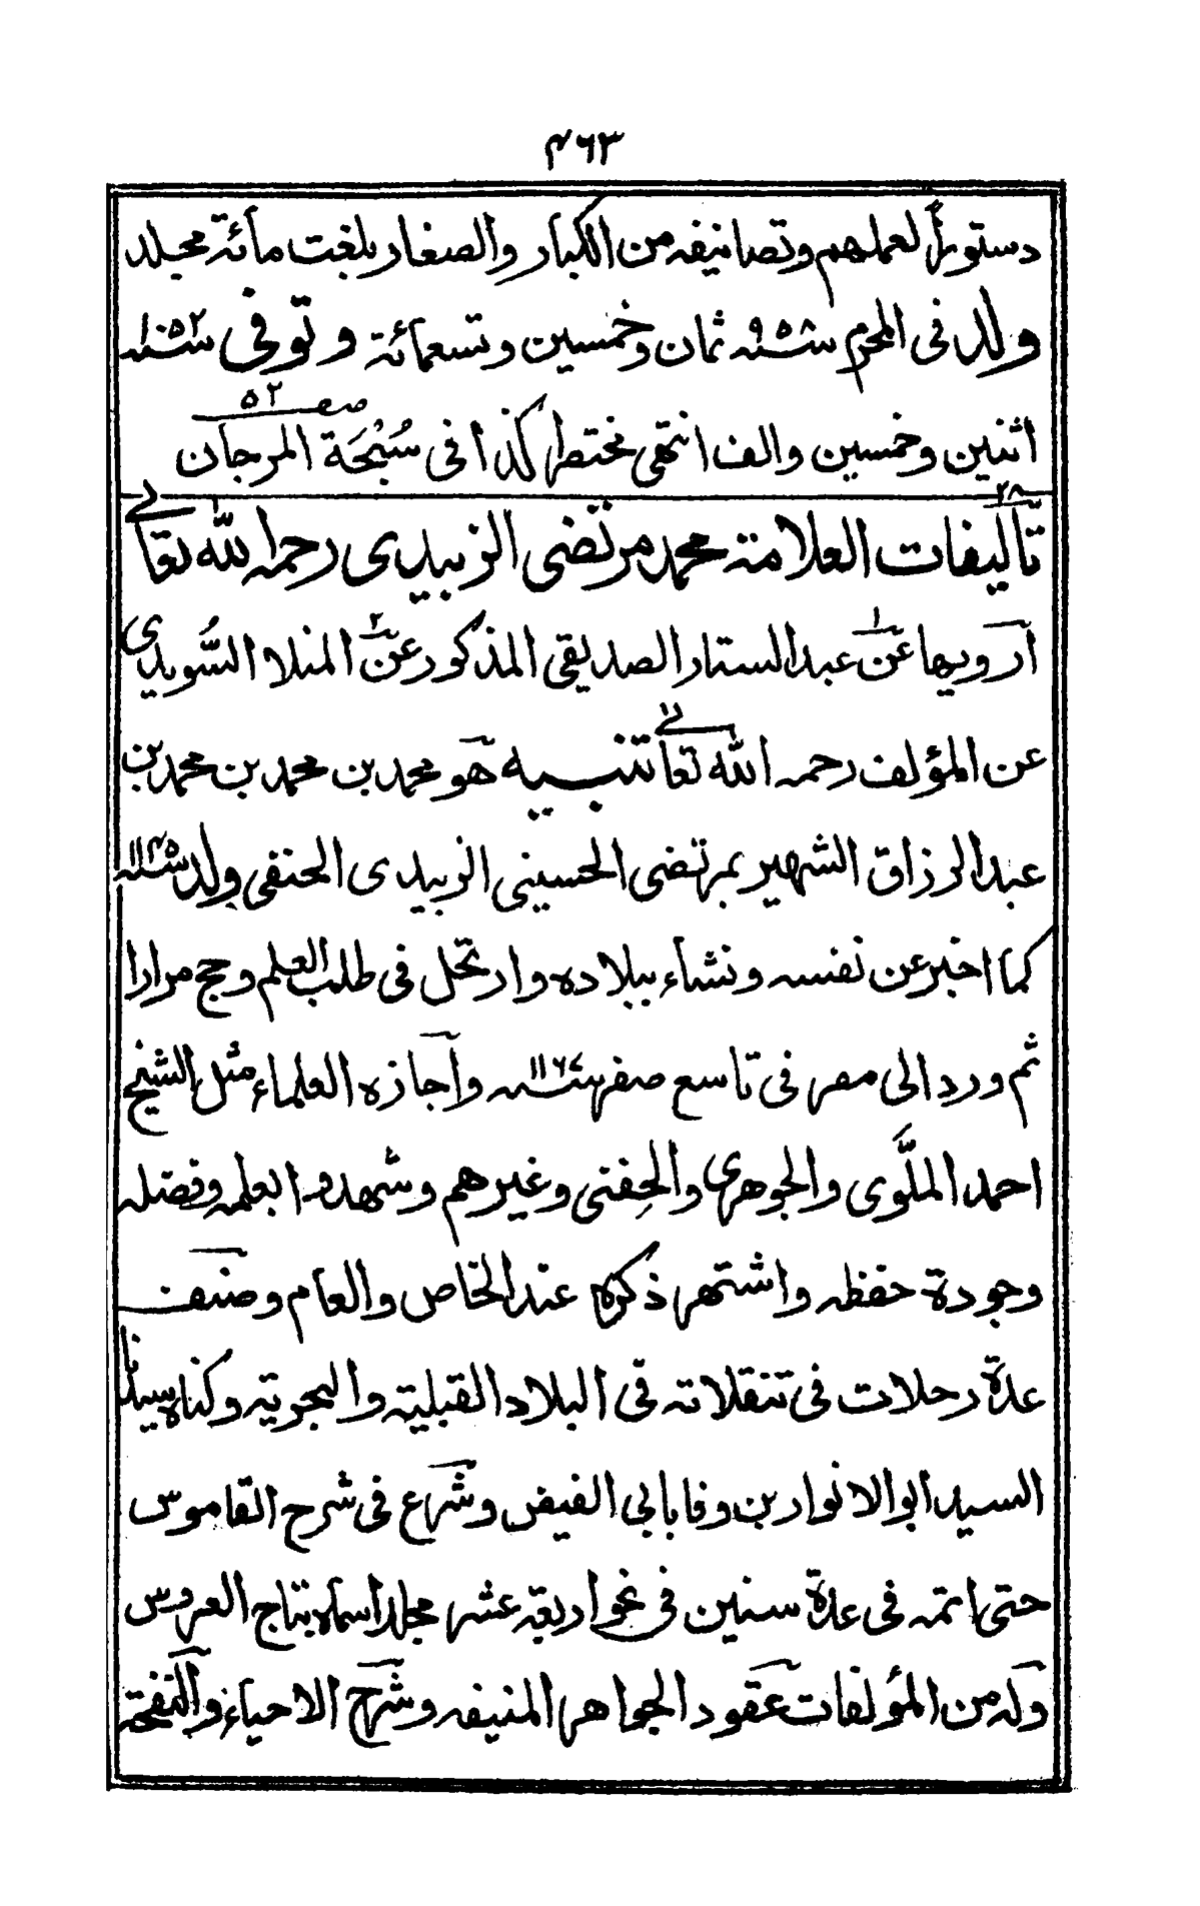 ٤٦٣
دستوراً لعملهم وتصانيفه من الكبار والصغار بلغت مائة مجلد
ولد فى المحرم سنة ٩٥٨ ثمان وخمسين وتسعمائة وتوفى سنة ١٠٥٢
اثنين وخمسين والف انتهى مختصرا كذا فى سُبْحَة المرجان صفـ ٥٢
٢٨
تآليفات العلامة محمد مرتضى الزبيدى رحمه الله تعالے
آرويها عنّ عبد الستار الصديقى المذكور عنّ المنلا السُّويدى
عن المؤلف رحمه الله تعالے تنبيه هو محمد بن محمد بن محمد بن
عبد الرزاق الشهير بمرتضى الحسينى الزبيدى الحنفى ولد سنة ١١٤٥
كما اخبر عن نفسه ونشاء ببلاده وارتحل فى طلب العلم وحج مرارا
ثم ورد الى مصر فى تاسع صفر سنة ١١٦٧ وآجازه العلماء مثل الشيخ
احمد الملَّوى والجوهرى والحِفنى وغيرهم وشهدوا بعلمه وفضله
وجودة حفظه واشتهر ذكره عند الخاص والعام وصنف
عدة رحلات فى تنقلاته فى البلاد القبلية والبحرية وكناه سيدنا
السيد ابو الانوار بن وفا بابى الفيض وشرع فى شرح القاموس
حتى اتمه فى عدة سنين فى نحو اربعة عشر مجلدا سماه بتاج العروس
وله من المؤلفات عقود الجواهر المنيفه وشرح الاحياء والنفحة